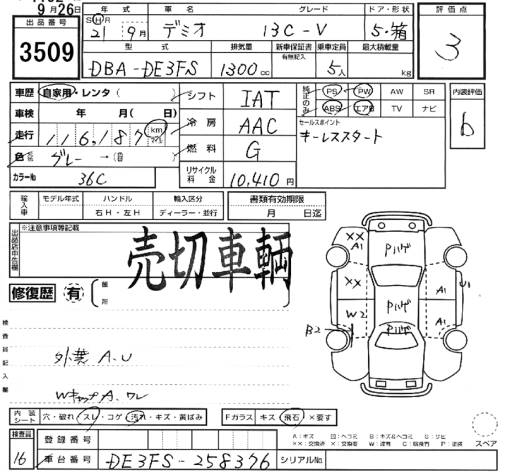 9月26日
出品番号
3509
年式 車名 グレード ドア・形状 評価点
S H R
21年9月 デミオ 13C-V 5・箱 3
型式 排気量 新車保証書 有無記入 乗車定員 最大積載量
DBA-DE3FS 1300cc 5人 kg
車歴 自家用・レンタ シフト IAT 純正のみ PS PW AW SR 内装評価
車検 年 月 日 ABS エアB TV ナビ b
走行 116,187 km 冷房 AAC セールスポイント
キーレススタート
色 グレー → 燃料 G
カラーNo 36C リサイクル料金 10,410円
輸入車 モデル年式 ハンドル 輸入区分 書類有効期限
右H・左H ディーラー・並行 月 日迄
出品店申告欄 ※注意事項等記載
売切車輌
修復歴 有 箇所
検査員記入欄
外業 A.U
Wキャップ A.ワレ
XX A1 Pハゲ
XX Pハゲ U1
W2 Pハゲ A1
B2
内装シート 穴・破れ スレ・コゲ 汚れ・キズ・黄ばみ Fガラス キズ 飛石 ×要す
検査員 16
登録番号
車台番号 DE3FS-258376 シリアルNo.
スペア